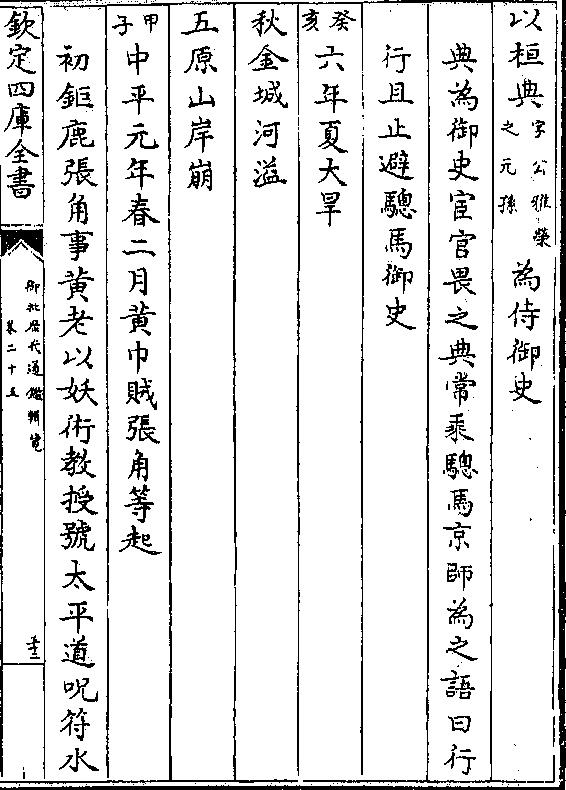 以桓典字公雅榮之元孫為侍御史
典為御史宦官畏之典常乘驄馬京師為之語曰行
行且止避驄馬御史
癸亥六年夏大旱
秋金城河溢
五原山岸崩
甲子中平元年春二月黃巾賊張角等起
初鉅鹿張角事黃老以妖術教授號太平道呪符水
欽定四庫全書
御批歷代通鑑輯覽
卷二十五